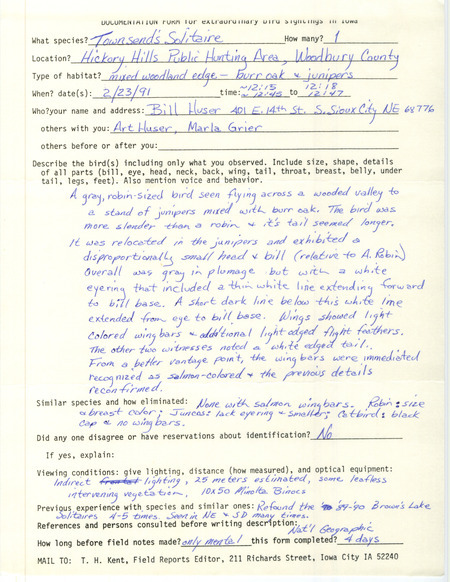 DOCUMENTATION FORM for extraordinary bird sightings in Iowa
What species? Townsend's Solitaire How many? 1
Location? Hickory Hills Public Hunting Area, Woodbury County
Type of habitat? mixed woodland edge - burr oak & junipers
When? date(s): 2/23/91 time: ~12:15 to 12:18
~12:45 12:47
Who? your name and address: Bill Huser 401 E. 14th St. S. Sioux City NE 68776
others with you: Art Huser, Marla Grier
others before or after you:
Describe the bird(s) including only what you observed. Include size, shape, details
of all parts (bill, eye, head, neck, back, wing, tail, throat, breast, belly, under
tail, legs, feet). Also mention voice and behavior.
A gray, robin-sized bird seen flying across a wooded valley to
a stand of junipers mixed with burr oak. The bird was
more slender than a robin & it's tail seemed longer.
It was relocated in the junipers and exhibited a
disproportionally small head & bill (relative to A. Robin)
Overall was gray in plumage but with a white
eyering that included a thin white line extending forward
to bill base. A short dark line below this white line
extended from eye to bill base. Wings showed light
colored wingbars & additional light edged flight feathers.
The other two witnesses noted a white edged tail.
From a better vantage point, the wingbars were immediated
recognized as salmon-colored & the previous details
reconfirmed.
Similar species and how eliminated: None with salmon wingbars. Robin: size
& breast color; Juncos: lack eyering & smaller; Catbird: black
cap & no wingbars.
Did any one disagree or have reservations about identification? No
If yes, explain:
Viewing conditions: give lighting, distance (how measured), and optical equipment:
Indirect frontal lighting, 25 meters estimated, some leafless
intervening vegetation, 10x50 Minolta Binocs
Previous experience with species and similar ones: Refound the '89-90 Brown's Lake
Solitaires 4-5 times. Seen in NE & SD many times.
References and persons consulted before writing description: Nat'l Geographic
How long before field notes made? only mental this form completed? 4 days
MAIL TO: T. H. Kent, Field Reports Editor, 211 Richards Street, Iowa City IA 52240